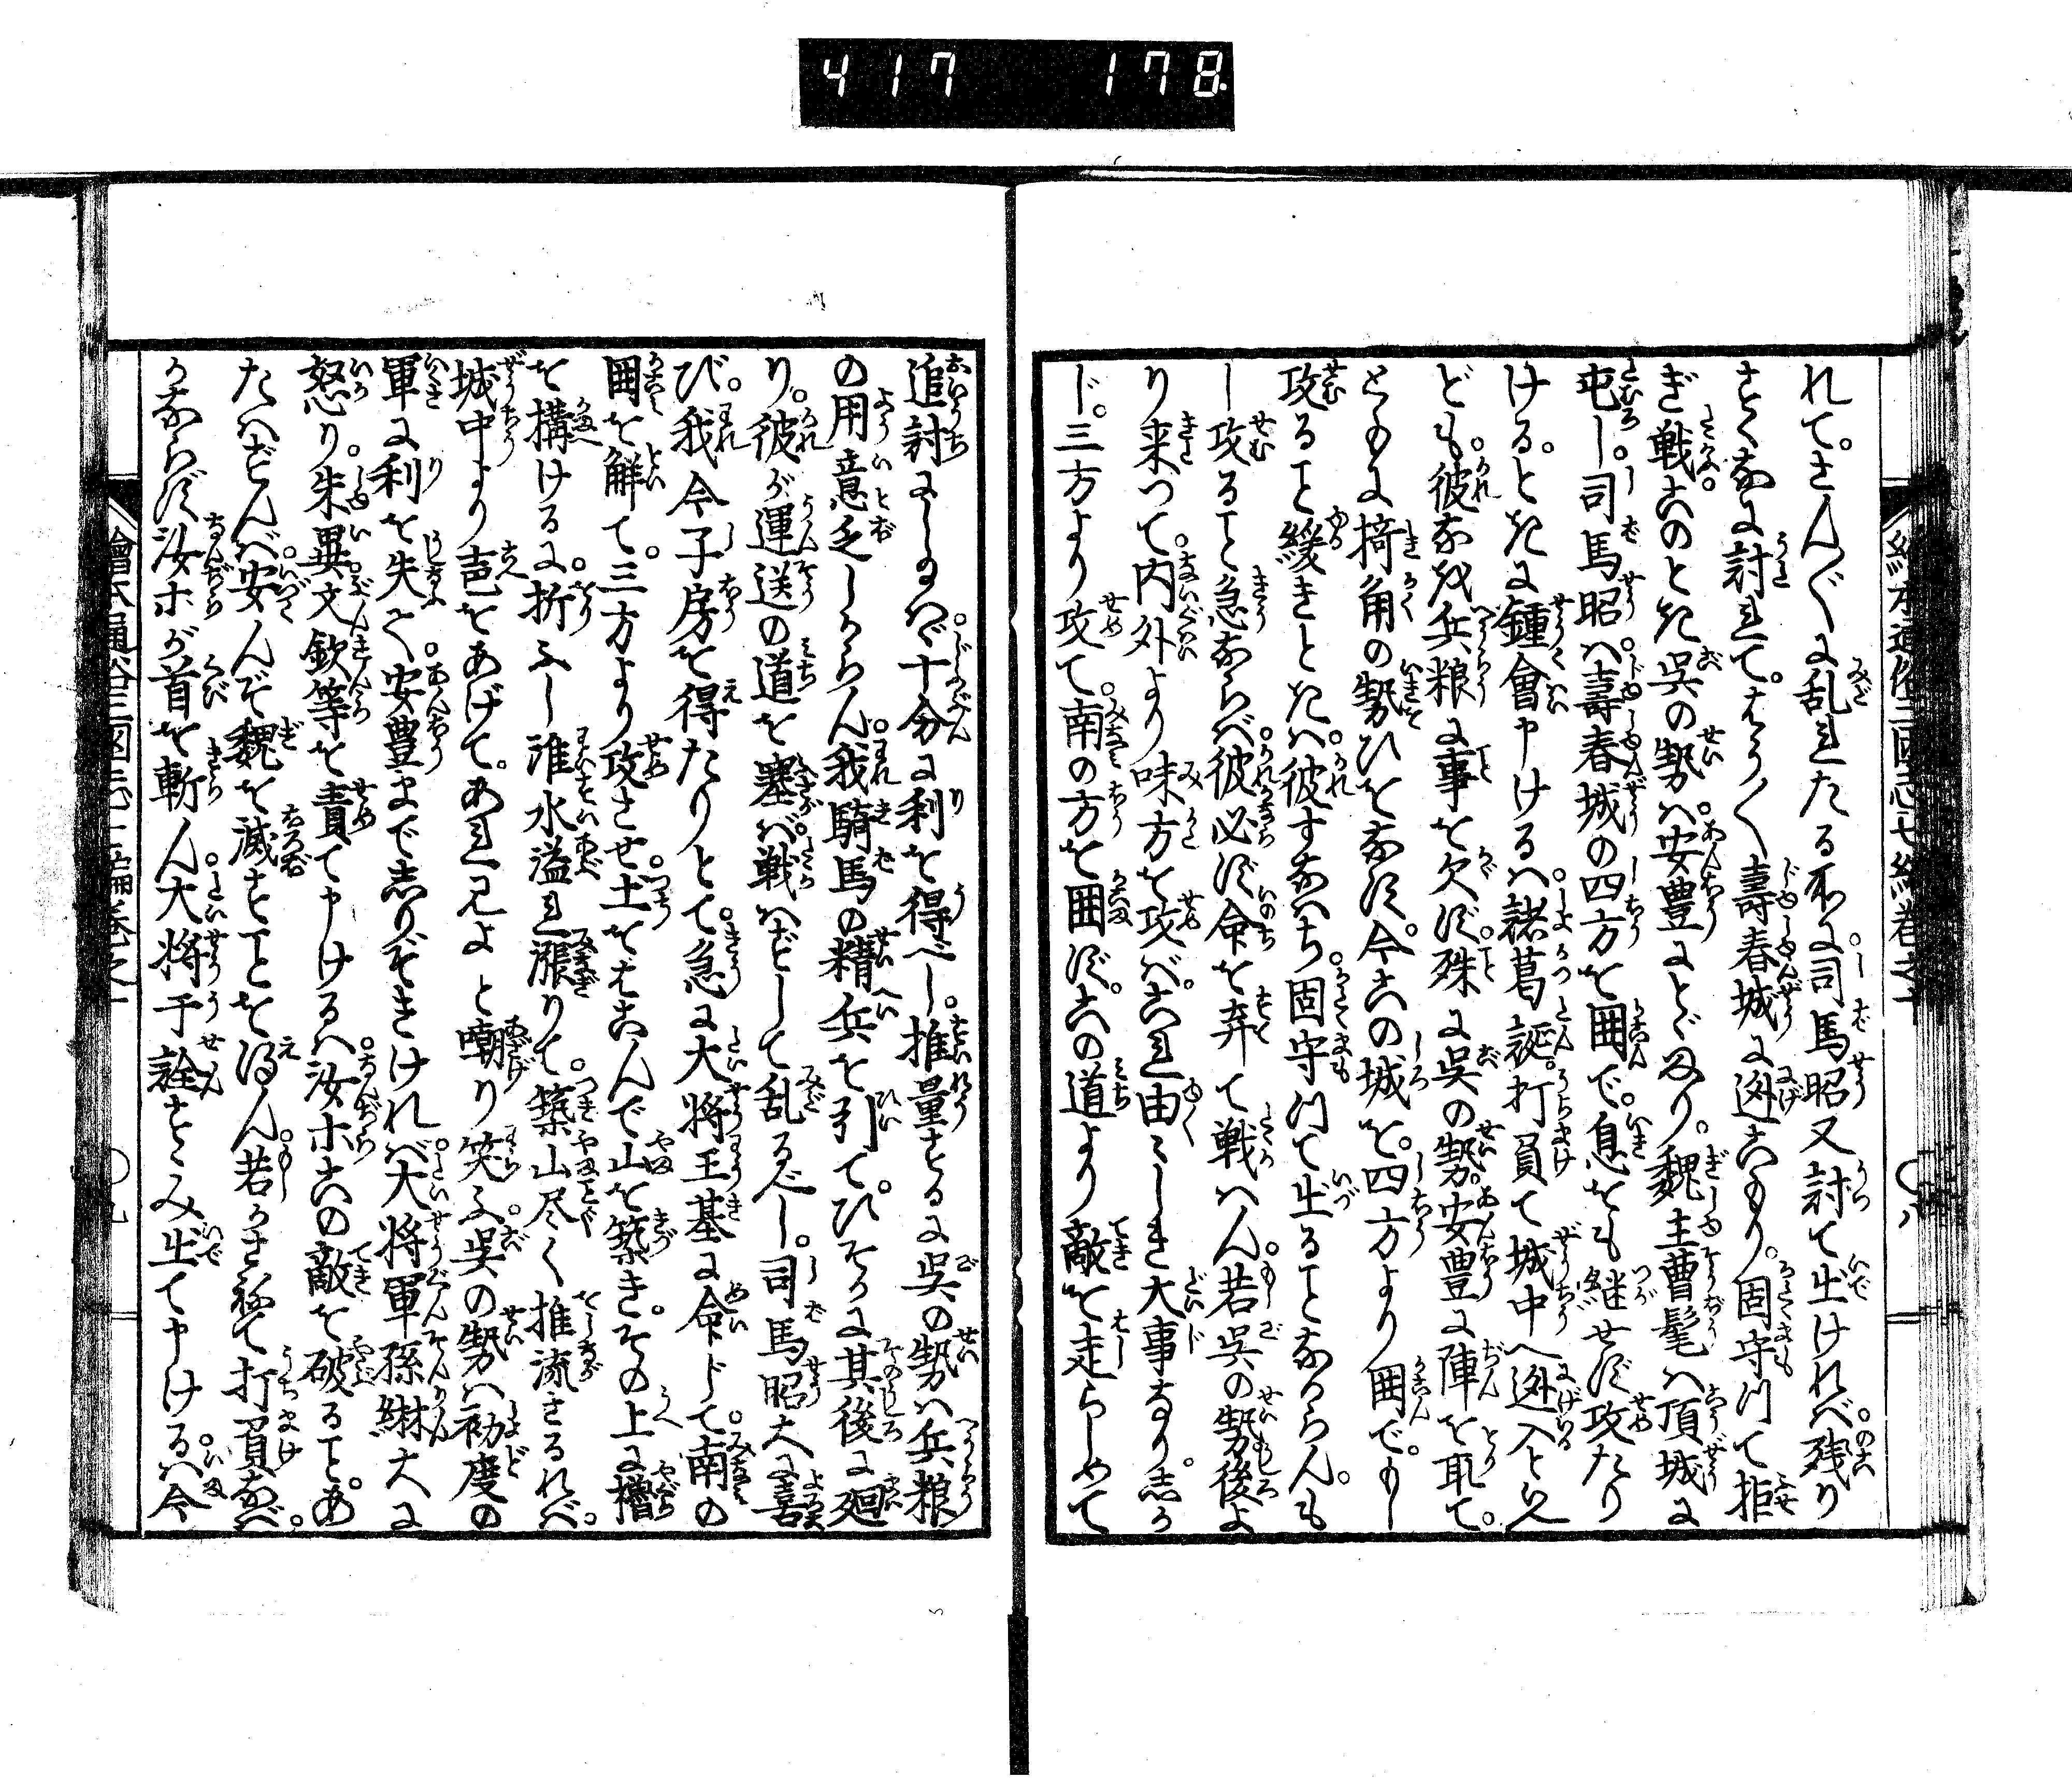 417 178
れて。さん〴〵に乱れたる所に司馬昭又討て出ければ。残り
すくなに討れて。やう〳〵壽春城に迯こもり。固守つて拒
ぎ戦ふ。このとき呉の勢は。安豊にとゞまり。魏主曹髦は項城に
屯し。司馬昭は。壽春城の四方を囲で。息をも継せず攻たり
ける。ときに鍾會申けるは。諸葛誕。打負て城中へ迯入と〻
ども。彼なほ兵粮に事を欠ず。殊に呉の勢。安豊に陣を取て。
ともに掎角の勢ひをなす。今この城を。四方より囲で。もし
攻ること緩きときは。彼すなはち。固守つて出ることなからん。も
し攻ること急ならば。彼必ず命を弃て戦はん。若呉の勢後よ
り来つて。内外より味方を攻ば。これ由々しき大事なり。しか
じ。三方より攻て。南の方を囲ず。この道より敵を走らしめて
追討にしるは゛。十分に利を得べし。推量するに呉の勢は兵粮
の用意乏しからん。我騎馬の精兵を引て。ひそかに其後に廻
り。彼が運送の道を塞ば。戦はずして乱るべし。司馬昭大に喜
び。我今子房を得たりとて。急に大将王基に命じて。南の
囲を解て。三方より攻させ。土をはこんで山を築き。その上に櫓
を構けるに。折ふし淮水溢れ漲りて。築山尽く推流さるれば。
城中より声をあげて。あれ見よと嘲り笑ふ。呉の勢は初度の
軍に利を失て。安豊まで志りぞきければ。大将軍孫綝大に
怒り。朱異。文欽等を責て申けるは。汝ホこの敵を破ること。あ
たはずんば。安んぞ魏を滅すことを得ん。若かさねて打負なば。
かならず汝ホが首を斬ん。大将于詮すゝみ出て申けるは。今